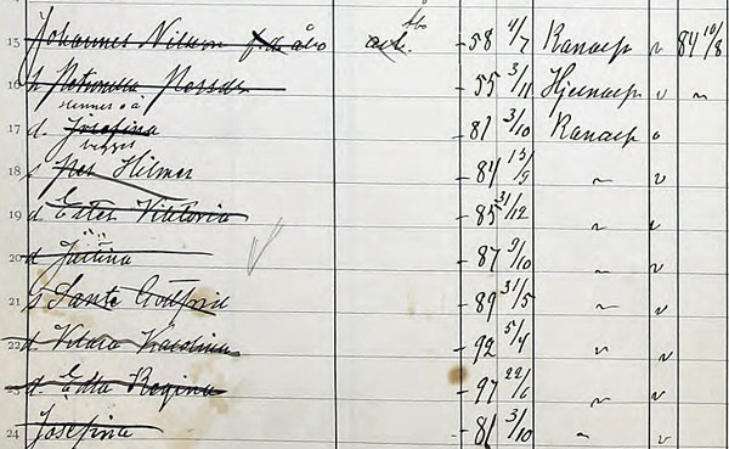 åbo
15 Johannes Nilsson f.d. åbo arb. -58 4/7 Ranarp v 84 10/8
16 h Petronella Persdr -55 3/11 Hjernarp v
hennes oä
17 d. Josefina -81 3/10 Ranarp v
begges
18 s Per Hilmer -84 13/9 " v
19 d Ester Viktoria -85 31/12 " v
20 d Justina -87 9/10 " v
21 s Sante Gottfrid -89 31/5 " v
22 d Karolina -92 5/4 " v
23 d. Edla Regina -97 22/6 " v
24 Josefina -81 3/10 " v